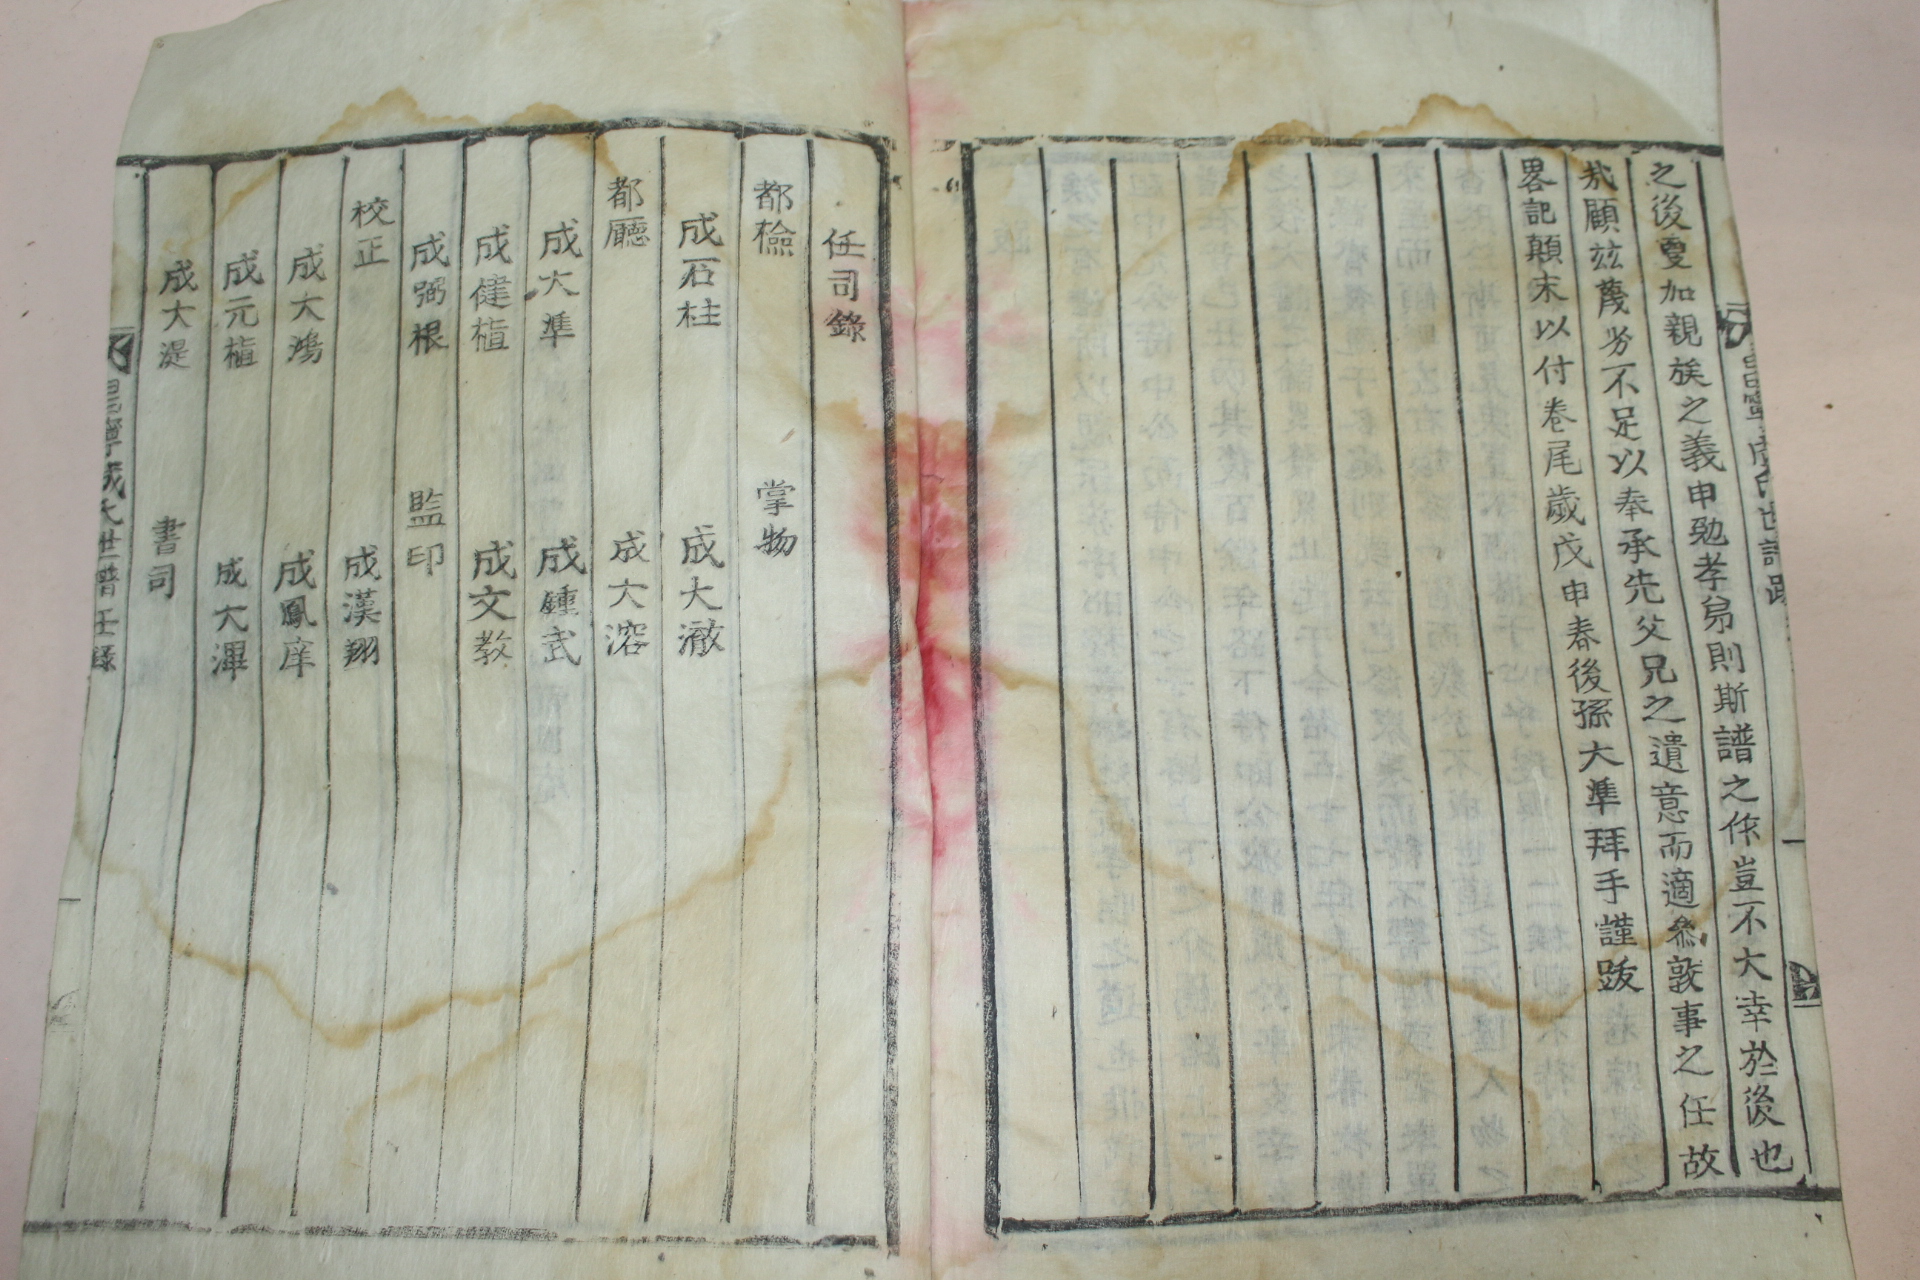 之後夏加親族之義申勉孝弟則斯譜之作豈不大幸於後也
哉顧玆蔑劣不足以奉承先父兄之遺意而適叅敦事之任故
畧記顚末以付卷尾歲戊申春後孫大準拜手謹跋
任司錄
都檢
掌物
成石柱
成大澈
都廳
成大溶
成大準
成鍾武
成健植
成文教
成弼根
監印
校正
成漢翔
成大鴻
成鳳庠
成元植
成大渾
成大湜
書司
昌寧成氏世譜任錄
昌寧成氏世譜跋